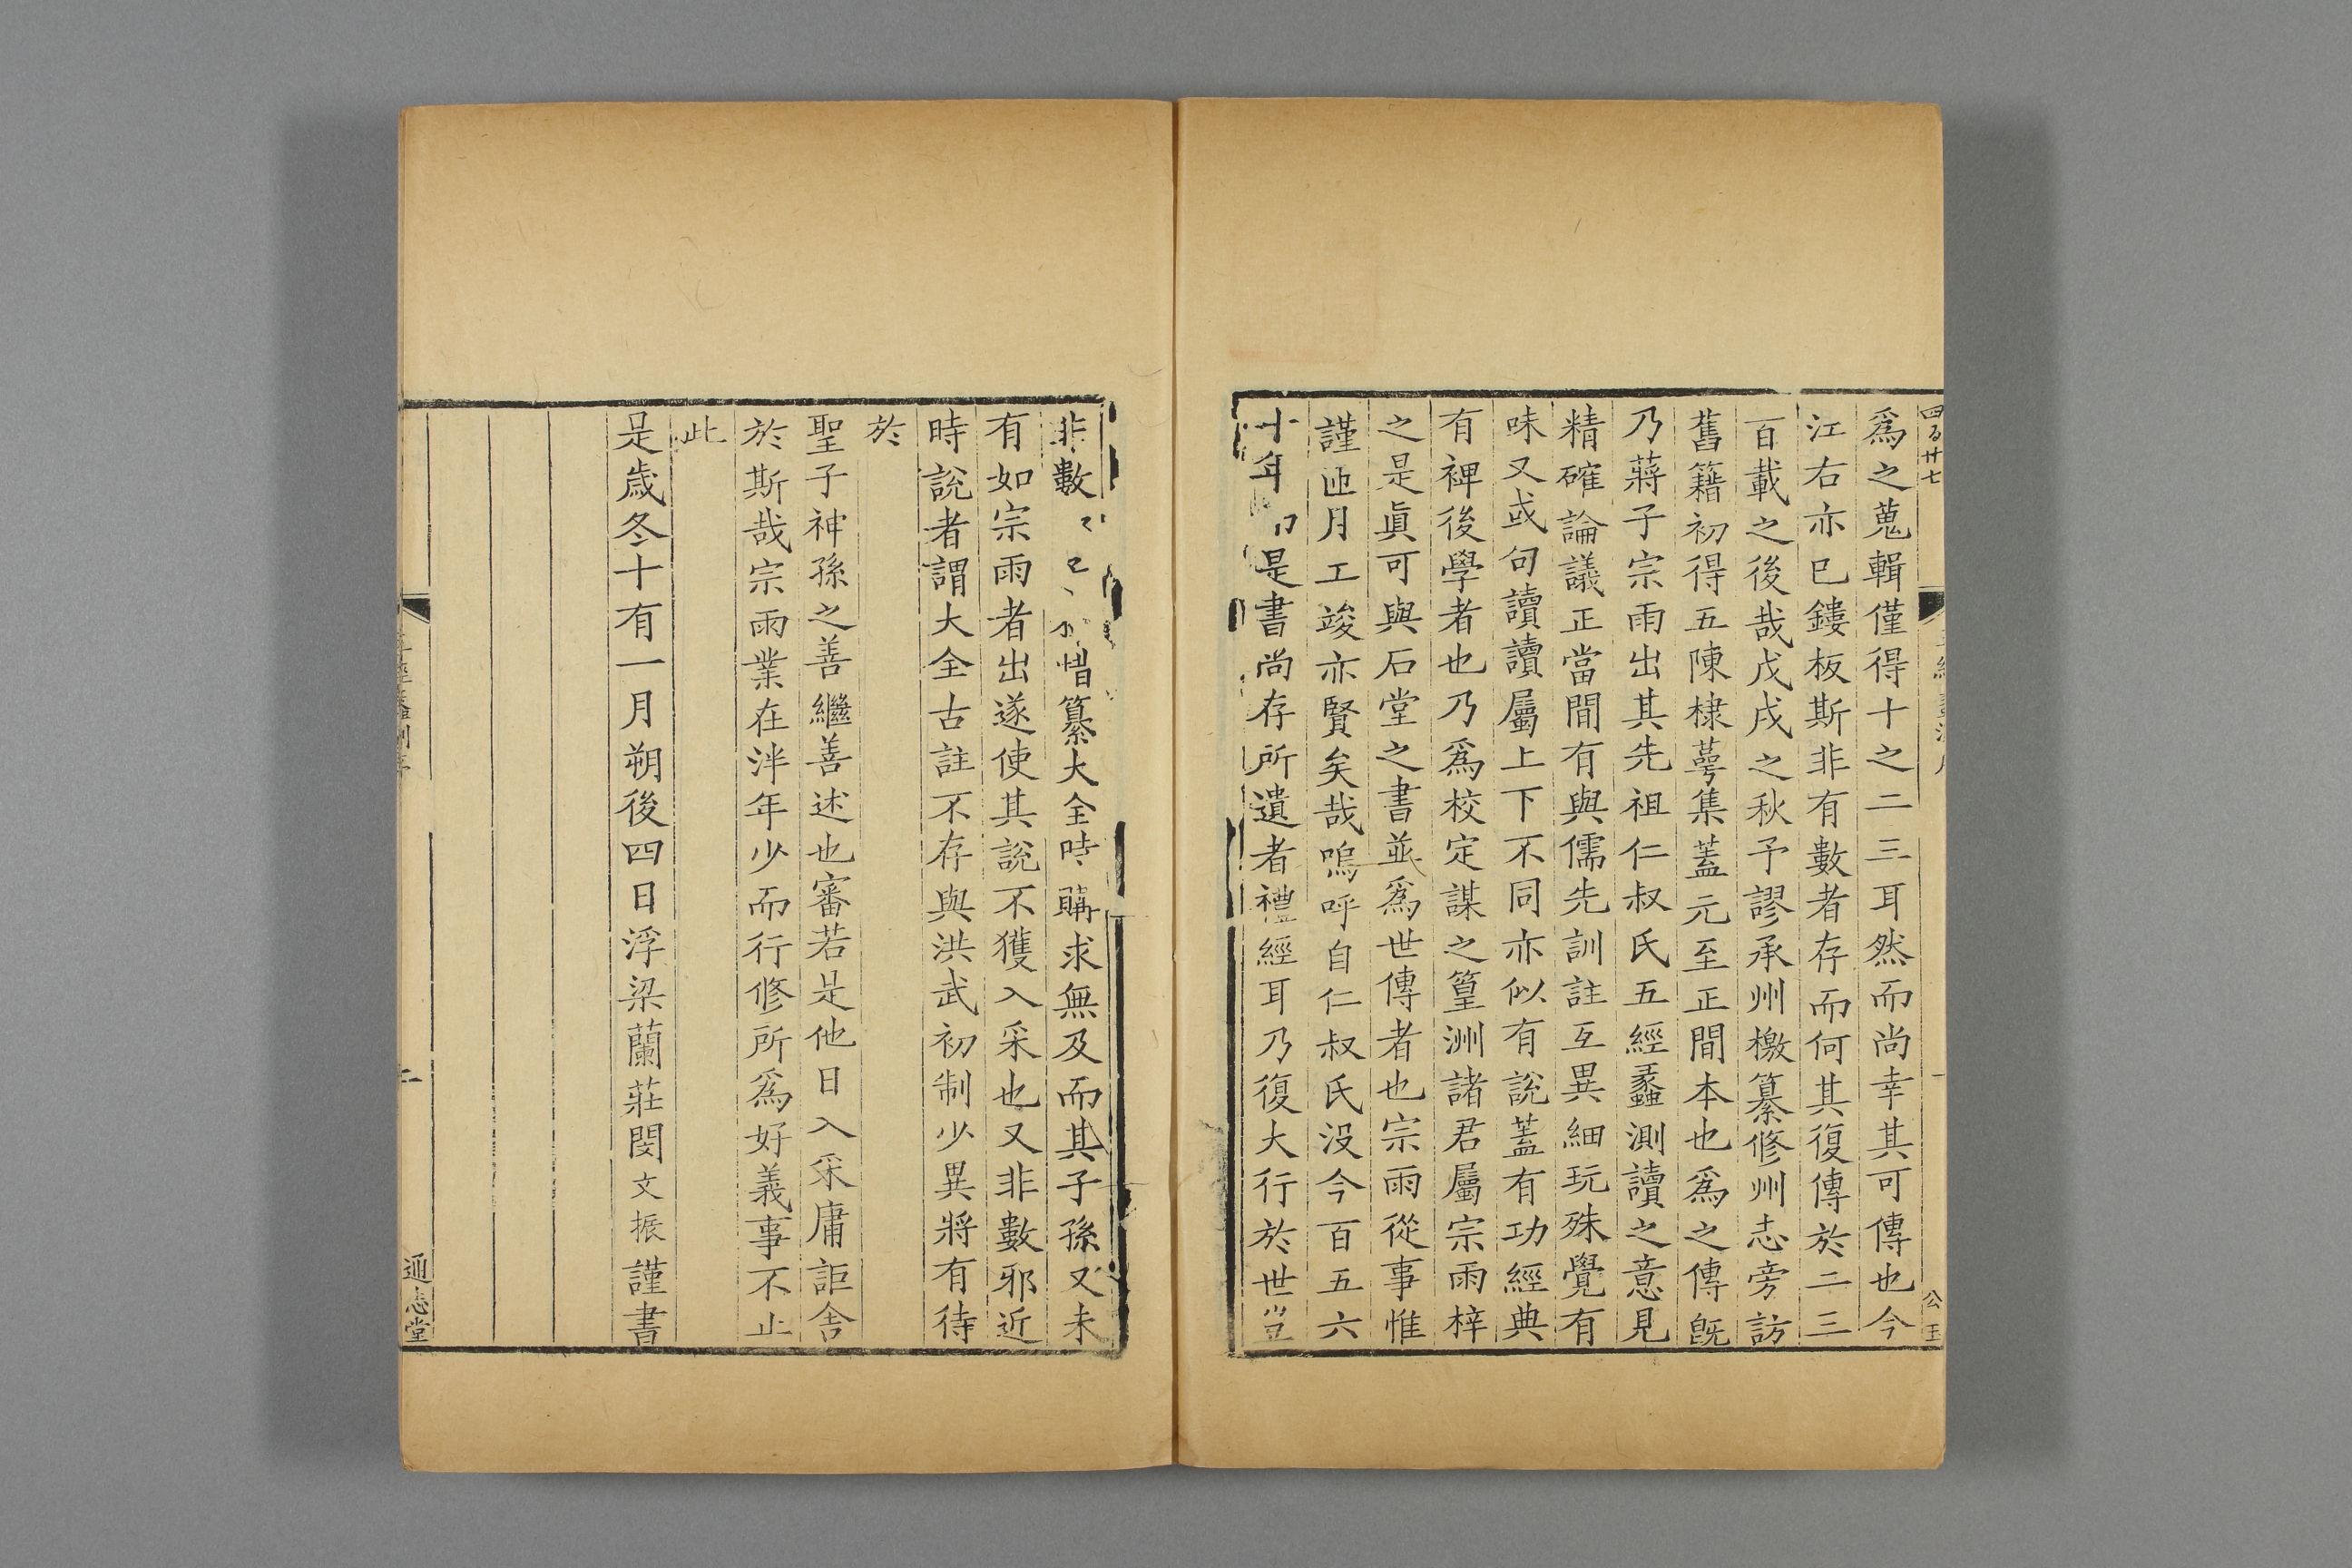 四百廿七
公玉
為之蒐輯僅得十之二三耳然而尚幸其可傳也今
江右亦巳鏤板斯非有數者存而何其復傳於二三
百載之後哉戊戌之秋予謬承州檄纂修州志旁訪
舊籍初得五陳棣蕚集葢元至正間本也為之傳旣
乃蔣子宗雨出其先祖仁叔氏五經蠡測讀之意見
精確論議正當間有與儒先訓註互異細玩殊覺有
味又或句讀讀屬上下不同亦似有說葢有功經典
有裨後學者也乃為校定謀之篁洲諸君屬宗雨梓
之是眞可與石堂之書並為世傳者也宗雨從事惟
謹匝月工竣亦賢矣哉嗚呼自仁叔氏沒今百五六
十年是書尚存所遺者禮經耳乃復大行於世豈
非數惜纂大全時購求無及而其子孫又未
有如宗雨者出遂使其說不獲入采也又非數邪近
時說者謂大全古註不存與洪武初制少異將有待
於
聖子神孫之善繼善述也審若是他日入采庸詎舍
於斯哉宗雨業在泮年少而行修所為好義事不止
此
是歲冬十有一月朔後四日浮梁蘭莊閔文振謹書
二
通志堂